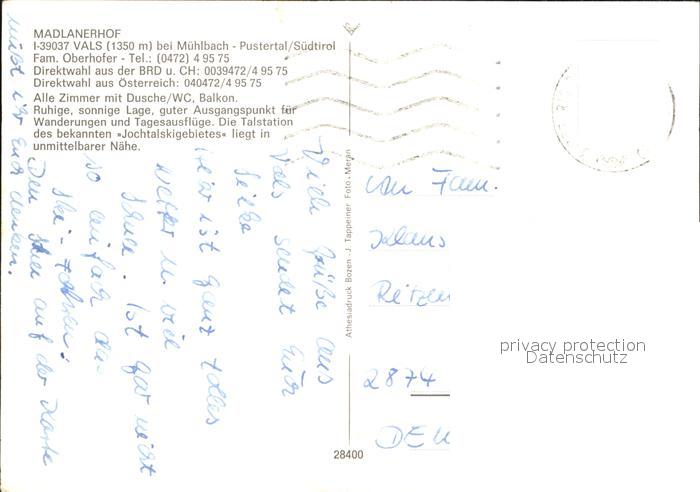 MADLANERHOF
I-39037 VALS (1350 m) bei Mühlbach - Pustertal/Südtirol
Fam. Oberhofer - Tel.: (0472) 4 95 75
Direktwahl aus der BRD u. CH: 0039472/4 95 75
Direktwahl aus Österreich: 040472/4 95 75
Alle Zimmer mit Dusche/WC, Balkon.
Ruhige, sonnige Lage, guter Ausgangspunkt für
Wanderungen und Tagesausflüge. Die Talstation
des bekannten »Jochtalskigebietes« liegt in
unmittelbarer Nähe.
Viele Grüße aus
Vals sendet Euch
Silke
Hier ist ganz tolles
Wetter u. viel
Schnee. Ist gar nicht
so einfach das
Ski-Fahren!
Den auf der Karte
müßt ihr Euch denken.
Athesiadruck Bozen - J. Tappeiner Foto - Meran
28400
an Fam.
Klaus
2874
privacy protection
Datenschutz